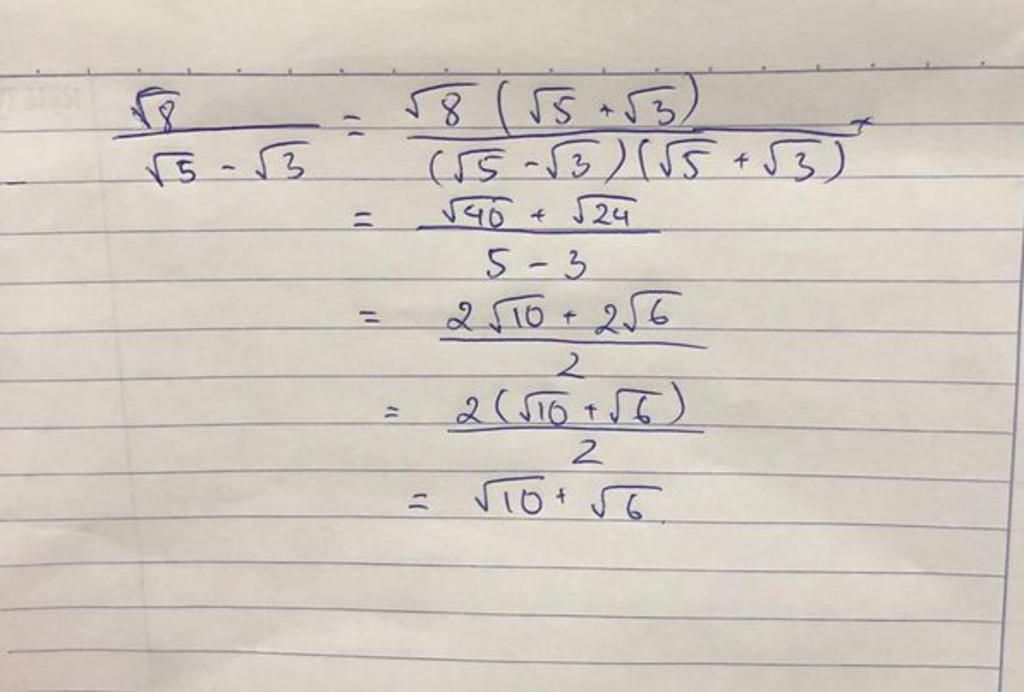 √8 / (√5 - √3) = √8 (√5 + √3) / (√5 - √3)(√5 + √3)
= (√40 + √24) / (5 - 3)
= (2√10 + 2√6) / 2
= 2(√10 + √6) / 2
= √10 + √6